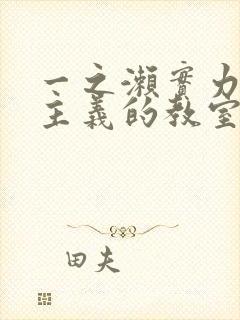 一之瀨實力
主義的教室
田夫